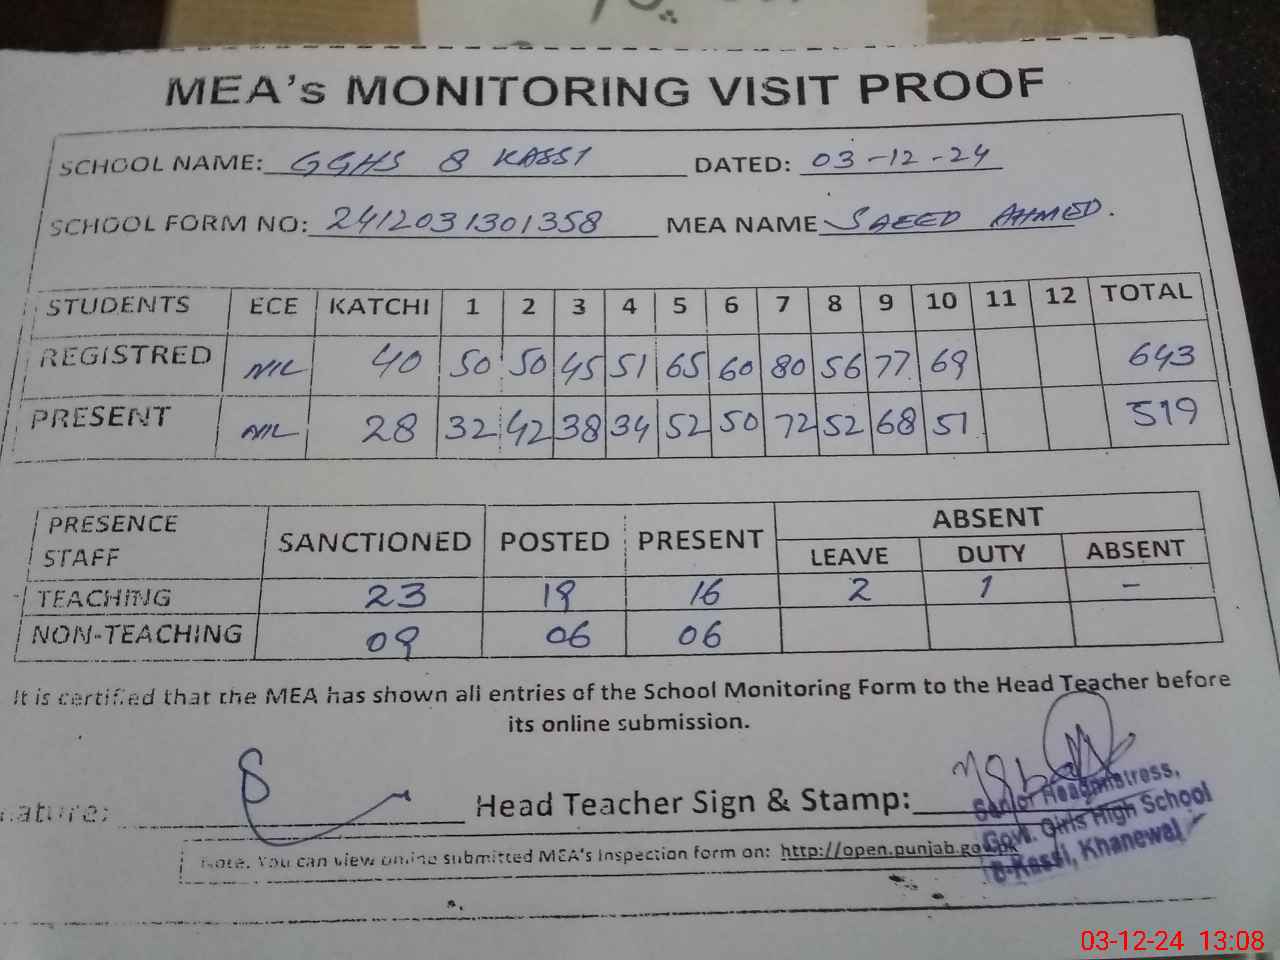 MEA's MONITORING VISIT PROOF
SCHOOL NAME: GGHS 8 KASSI DATED: 03-12-24
SCHOOL FORM NO: 2412031301358 MEA NAME SAEED AHMED.
STUDENTS ECE KATCHI 1 2 3 4 5 6 7 8 9 10 11 12 TOTAL
REGISTRED NIL 40 50 50 45 51 65 60 80 56 77 69 643
PRESENT NIL 28 32 42 38 34 52 50 72 52 68 51 519
PRESENCE STAFF SANCTIONED POSTED PRESENT ABSENT
LEAVE DUTY ABSENT
TEACHING 23 19 16 2 1 -
NON-TEACHING 09 06 06
It is certified that the MEA has shown all entries of the School Monitoring Form to the Head Teacher before
its online submission.
nature: Head Teacher Sign & Stamp:
Senior Headmistress,
Govt. Girls High School
8-Kassi, Khanewal
Note. You can view online submitted MEA's Inspection form on: http://open.punjab.gov.pk
03-12-24 13:08